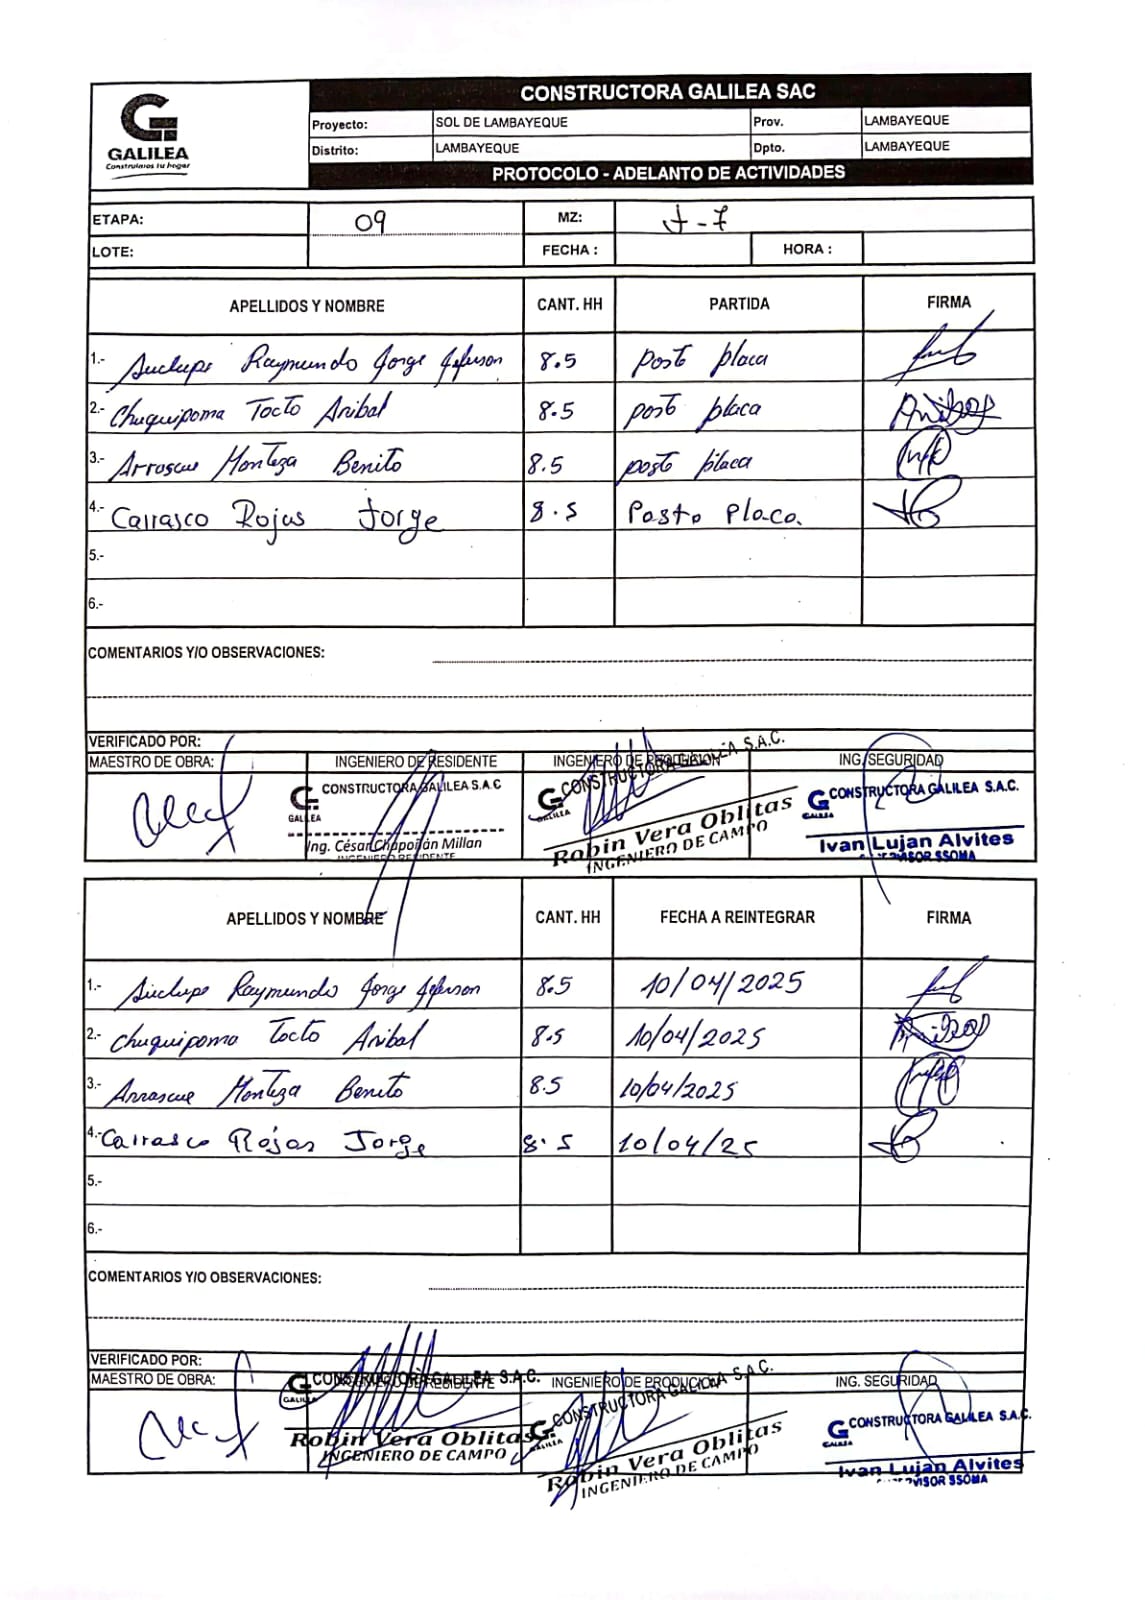 GALILEA
Construimos tu hogar
CONSTRUCTORA GALILEA SAC
Proyecto: SOL DE LAMBAYEQUE Prov. LAMBAYEQUE
Distrito: LAMBAYEQUE Dpto. LAMBAYEQUE
PROTOCOLO - ADELANTO DE ACTIVIDADES
ETAPA: 09 MZ: J-7
LOTE: FECHA : HORA :
APELLIDOS Y NOMBRE CANT. HH PARTIDA FIRMA
1.- Suclupe Raymundo Jorge Jeferson 8.5 posto placa
2.- Chuquipoma Tocto Anibal 8.5 posto placa
3.- Arrascue Monteza Benito 8.5 posto placa
4.- Carrasco Rojas Jorge 8.5 Posto Placa.
5.-
6.-
COMENTARIOS Y/O OBSERVACIONES:
VERIFICADO POR:
MAESTRO DE OBRA: INGENIERO DE RESIDENTE INGENIERO DE PRODUCCION ING. SEGURIDAD
GALILEA CONSTRUCTORA GALILEA S.A.C GALILEA CONSTRUCTORA GALILEA S.A.C. GALILEA CONSTRUCTORA GALILEA S.A.C.
Ing. César Chapoñán Millan Robin Vera Oblitas Ivan Lujan Alvites
INGENIERO RESIDENTE INGENIERO DE CAMPO SUPERVISOR SSOMA
APELLIDOS Y NOMBRE CANT. HH FECHA A REINTEGRAR FIRMA
1.- Suclupe Raymundo Jorge Jeferson 8.5 10/04/2025
2.- Chuquipoma Tocto Anibal 8.5 10/04/2025
3.- Arrascue Monteza Benito 8.5 10/04/2025
4.- Carrasco Rojas Jorge 8.5 10/04/25
5.-
6.-
COMENTARIOS Y/O OBSERVACIONES:
VERIFICADO POR:
MAESTRO DE OBRA: RESIDENTE INGENIERO DE PRODUCION ING. SEGURIDAD
GALILEA CONSTRUCTORA GALILEA S.A.C. GALILEA CONSTRUCTORA GALILEA S.A.C. GALILEA CONSTRUCTORA GALILEA S.A.C.
Robin Vera Oblitas Robin Vera Oblitas Ivan Lujan Alvites
INGENIERO DE CAMPO INGENIERO DE CAMPO SUPERVISOR SSOMA